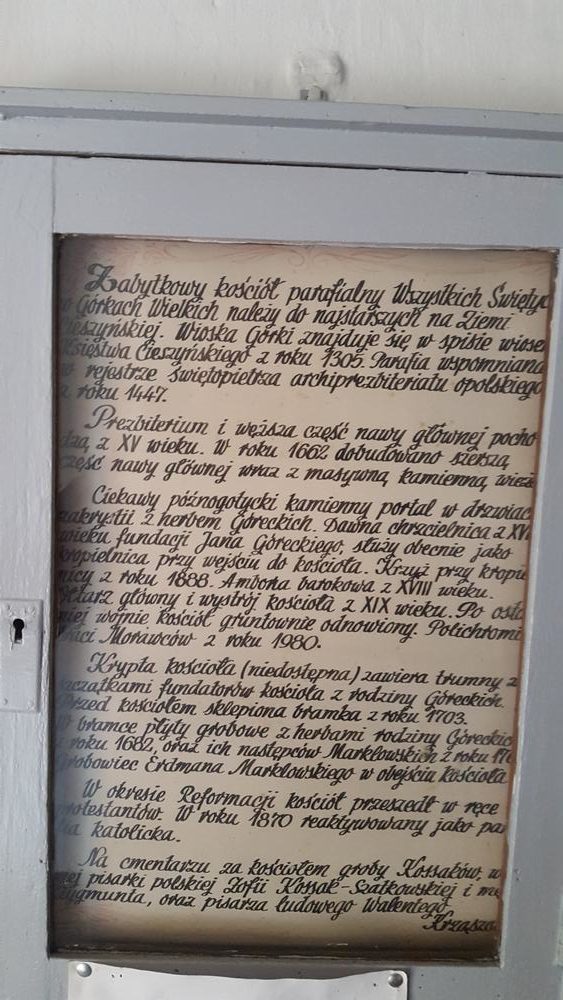 Zabytkowy kościół parafialny Wszystkich Święty
w Górkach Wielkich należy do najstarszych na Ziemi
ieszyńskiej. Wioska Górki znajduje się w spisie wiosek
Księstwa Cieszyńskiego z roku 1305. Parafia wspomniana
w rejestrze świętopietrza archiprezbiteriatu opolskiego
z roku 1447.
Prezbiterium i węższa część nawy głównej pocho
dzą z XV wieku. W roku 1662 dobudowano szerszą
część nawy głównej wraz z masywną, kamienną, wież
Ciekawy późnogotycki kamienny portal w drzwiac
zakrystii z herbem Góreckich. Dawna chrzcielnica z XVI
wieku fundacji Jana Góreckiego, służy obecnie jako
kropielnica przy wejściu do kościoła. Krzyż przy kropie
nicy z roku 1888. Ambona barokowa z XVIII wieku.
Ołtarz główny i wystrój kościoła z XIX wieku. Po osta
niej wojnie kościół gruntownie odnowiony. Polichromi
raci Morawców z roku 1980.
Krypta kościoła (niedostępna) zawiera trumny z
szczątkami fundatorów kościoła z rodziny Góreckich.
Przed kościołem sklepiona bramka z roku 1703.
W bramce płyty grobowe z herbami rodziny Góreckic
z roku 1682, oraz ich następców Marklowskich z roku
Grobowiec Erdmana Marklowskiego w obejściu kościoła
W okresie Reformacji kościół przeszedł w ręce
protestantów. W roku 1870 reaktywowany jako pa
ia katolicka.
Na cmentarzu za kościołem groby Kossaków, w
nej pisarki polskiej Zofii Kossak-Szatkowskiej i mę
Zygmunta, oraz pisarza ludowego Walentego
Krząszcz